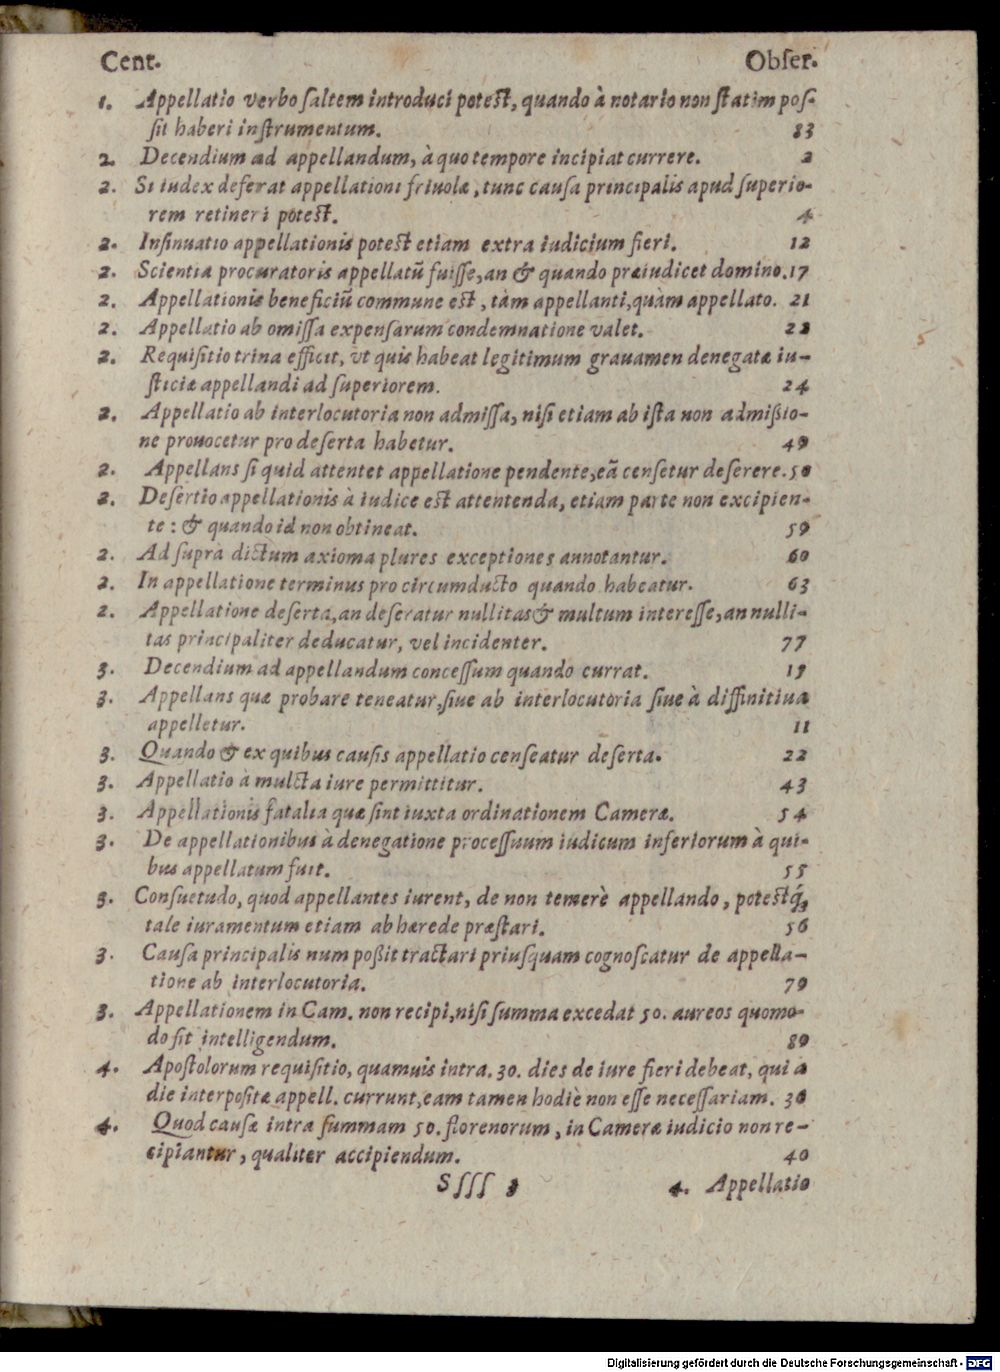 Cent. Obser.
1. Appellatio verbo saltem introduci potest, quando à notario non statim pos-
sit haberi instrumentum. 83
2. Decendium ad appellandum, à quo tempore incipiat currere. 2
2. Si iudex deferat appellationi friuolæ, tunc causa principalis apud superio-
rem retineri potest. 4
2. Insinuatio appellationis potest etiam extra iudicium fieri. 12
2. Scientia procuratoris appellatũ fuisse, an & quando præiudicet domino. 17
2. Appellationis beneficiũ commune est, tàm appellanti, quàm appellato. 21
2. Appellatio ab omissa expensarum condemnatione valet. 22
2. Requisitio trina efficit, vt quis habeat legitimum grauamen denegatæ iu-
sticiæ appellandi ad superiorem. 24
2. Appellatio ab interlocutoria non admissa, nisi etiam ab ista non admißio-
ne prouocetur pro deserta habetur. 49
2. Appellans si quid attentet appellatione pendente, eã censetur deserere. 50
2. Desertio appellationis à iudice est attentenda, etiam parte non excipien-
te: & quando id non obtineat. 59
2. Ad supra dictum axioma plures exceptiones annotantur. 60
2. In appellatione terminus pro circumducto quando habeatur. 63
2. Appellatione deserta, an deseratur nullitas & multum interesse, an nulli-
tas principaliter deducatur, vel incidenter. 77
3. Decendium ad appellandum concessum quando currat.
3. Appellans quæ probare teneatur, siue ab interlocutoria siue à diffinitiua
appelletur. 11
3. Quando & ex quibus causis appellatio censeatur deserta. 22
3. Appellatio à multa iure permittitur. 43
3. Appellationis fatalia quæ sint iuxta ordinationem Cameræ. 54
3. De appellationibus à denegatione processuum iudicum inferiorum à qui-
bus appellatum fuit. 55
3. Consuetudo, quod appellantes iurent, de non temerè appellando, potestq́;
tale iuramentum etiam ab hærede præstari. 56
3. Causa principalis num poßit tractari priusquam cognoscatur de appella-
tione ab interlocutoria. 79
3. Appellationem in Cam. non recipi, nisi summa excedat 50. aureos quomo-
do sit intelligendum. 80
4. Apostolorum requisitio, quamuis intra. 30. dies de iure fieri debeat, qui a
die interpositæ appell. currunt, eam tamen hodiè non esse necessariam. 30
4. Quod causæ intra summam 50. florenorum, in Cameræ iudicio non re-
cipiantur, qualiter accipiendum. 40
Sſſſ 3 4. Appellatio
Digitalisierung gefördert durch die Deutsche Forschungsgemeinschaft - DFG